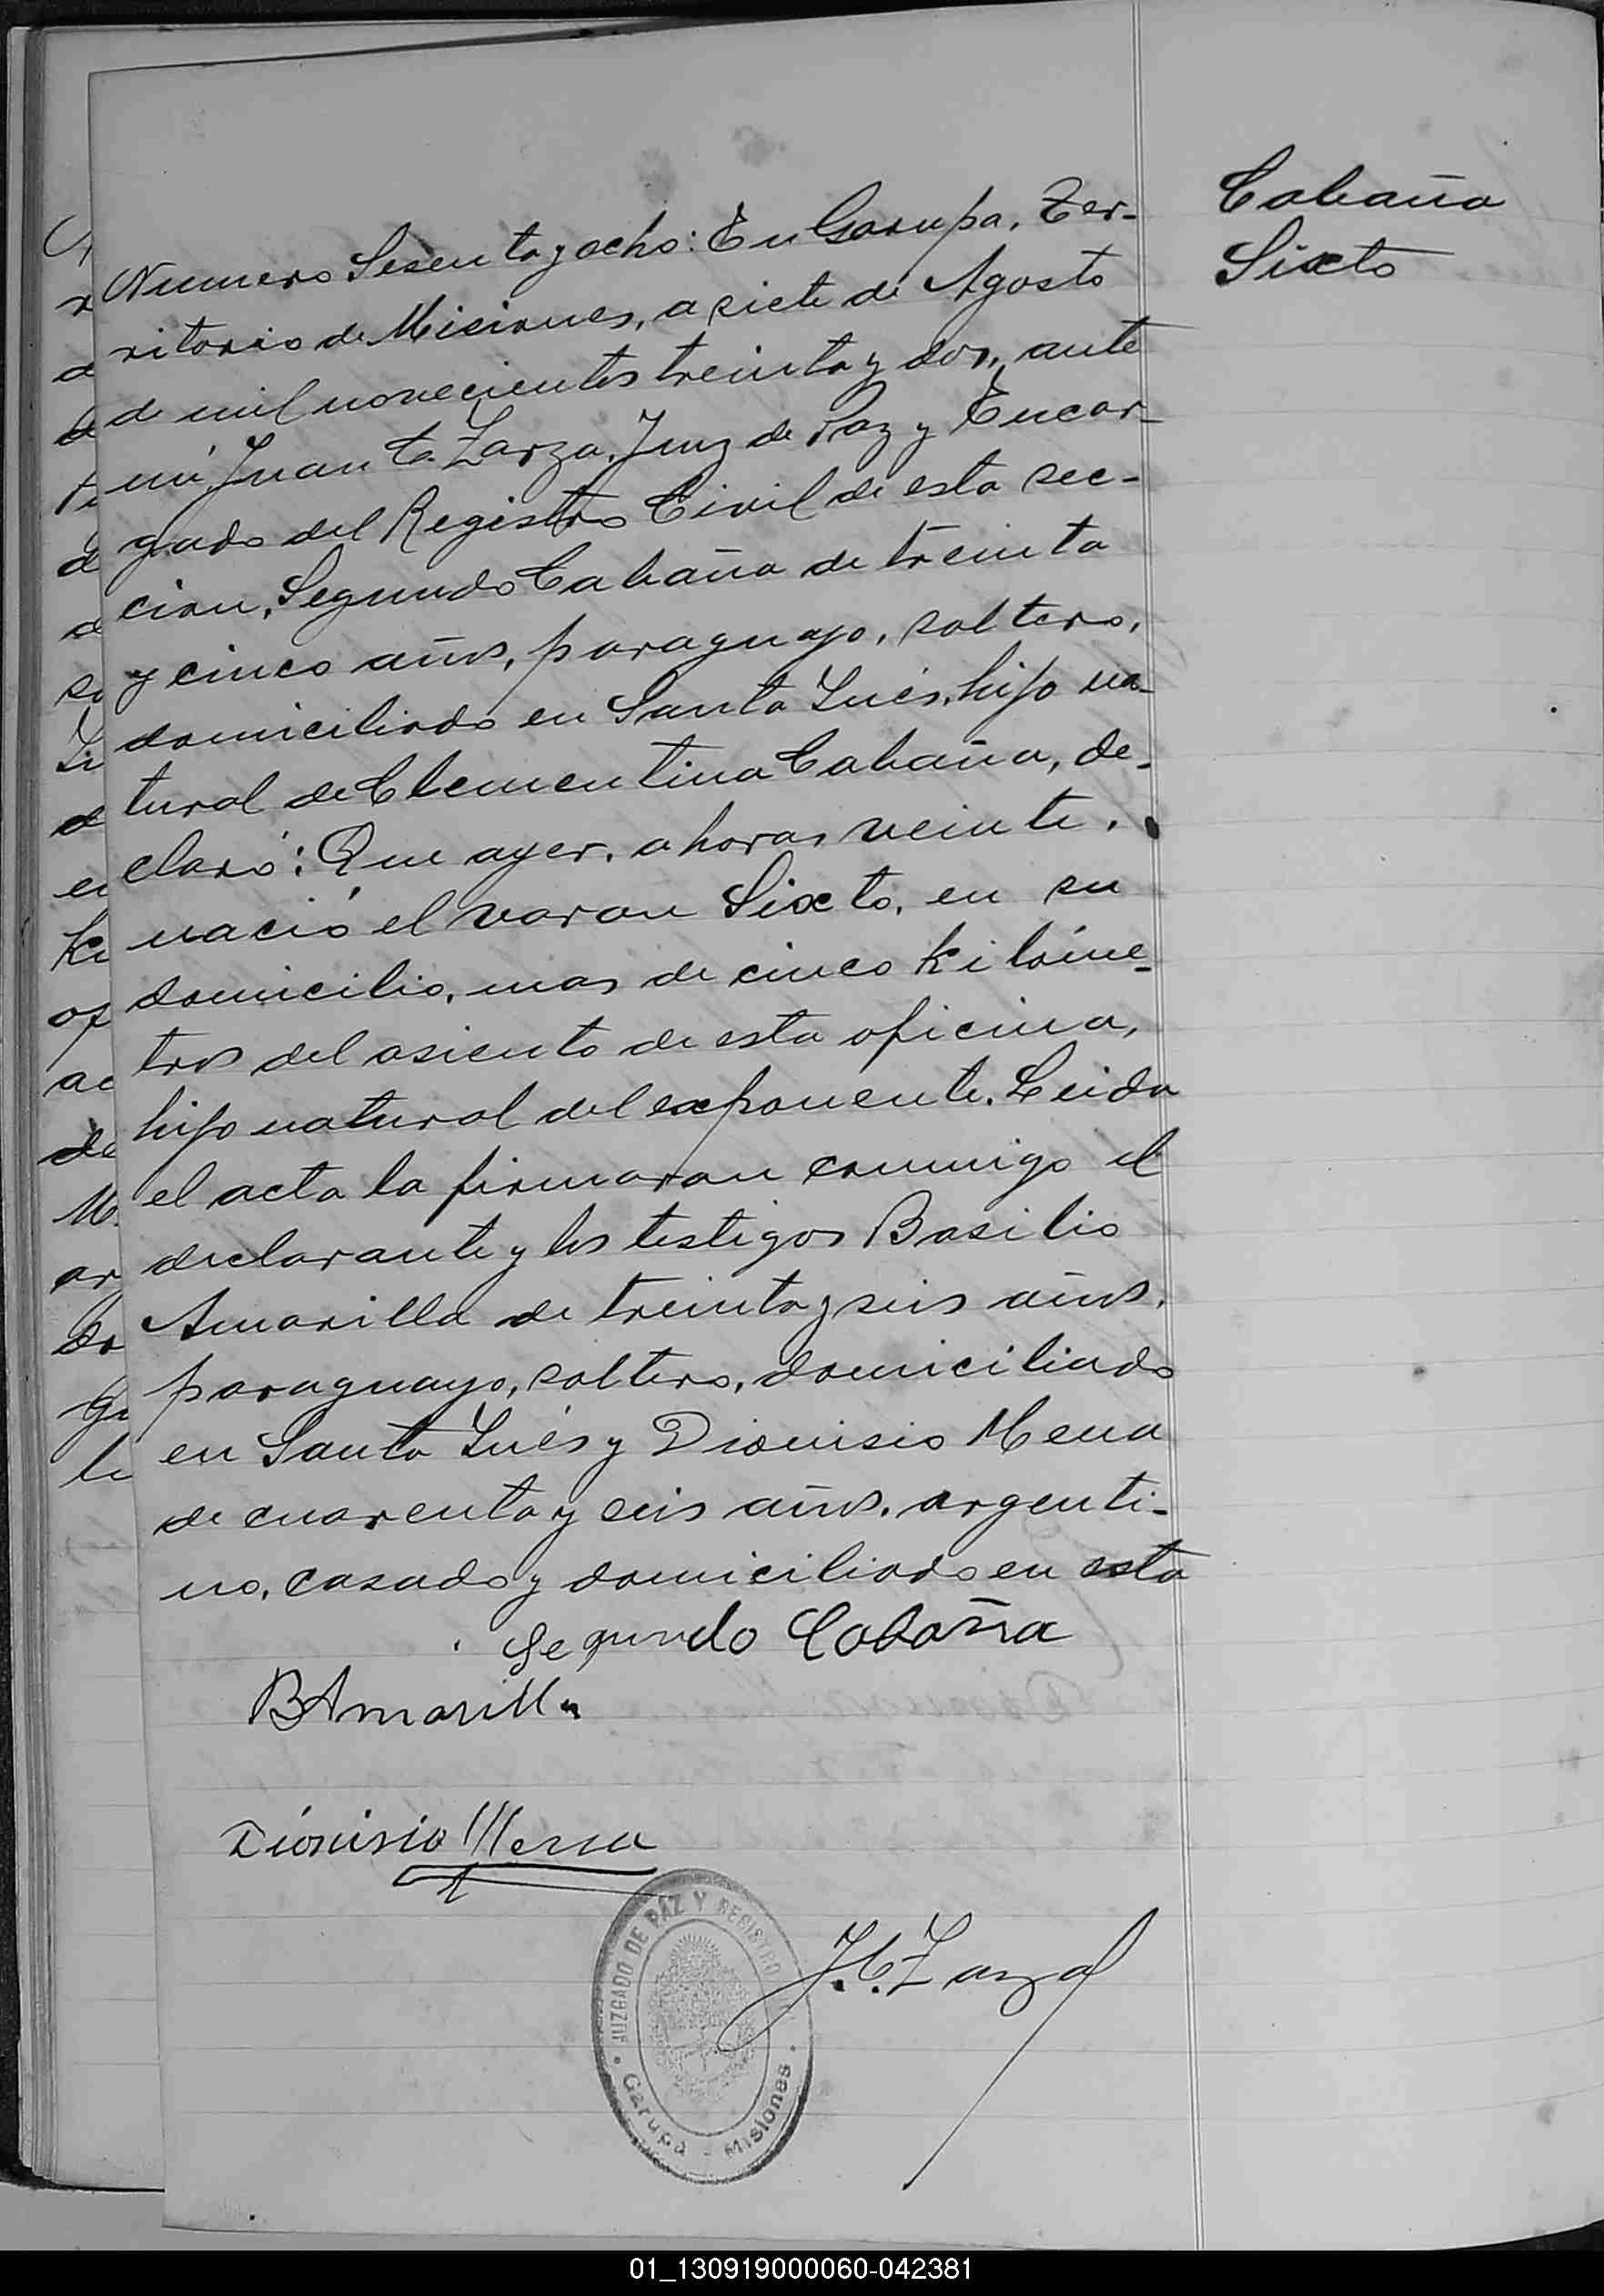 Cabaña
Sixto
Numero Sesenta y ocho: En Garupa, Ter-
ritorio de Misiones, a siete de Agosto
de mil novecientos treinta y dos, ante
mi Juan C. Zarza, Juez de Paz y Encar-
gado del Registro Civil de esta sec-
cion, Segundo Cabaña de treinta
y cinco años, paraguayo, soltero,
domiciliado en Santa Inés, hijo na-
tural de Clementina Cabaña, de-
claró: Que ayer, a horas veinte,
nació el varon Sixto, en su
domicilio, mas de cinco kilóme-
tros del asiento de esta oficina,
hijo natural del exponente. Leida
el acta la firmaron conmigo el
declarante y los testigos Basilio
Amarilla de treinta y seis años,
paraguayo, soltero, domiciliado
en Santa Inés y Dionisio Mena
de cuarenta y seis años, argenti-
no, casado y domiciliado en esta
Segundo Cabaña
BAmarilla
Dionisio Mena
J.C. Zarza
JUZGADO DE PAZ Y REGISTRO
Garupá - Misiones
01_130919000060-042381